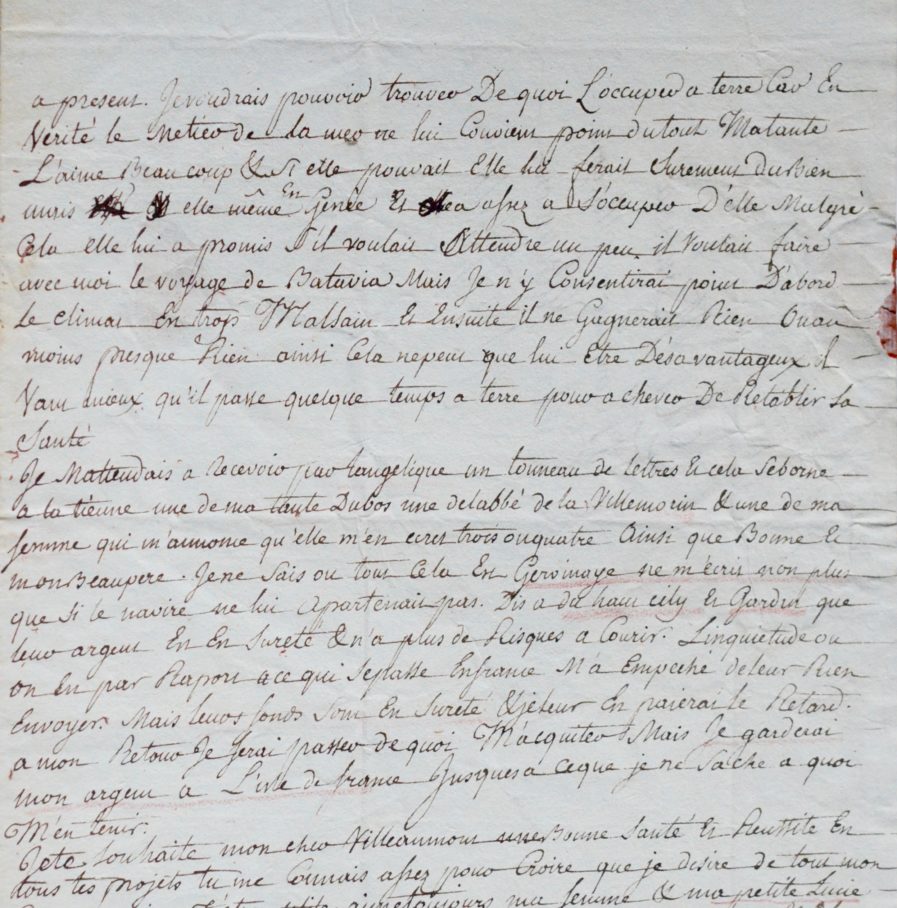 a present. Je voudrais pouvoir trouver De quoi L'occuper a terre Car En
Verité le Metier de La mer ne lui Convient point du tout Matante
L'aime Beaucoup & si elle pouvait Elle lui ferait Surement du Bien
mais elle même En Genée Et a assez a S'occuper D'elle Malgré
Cela elle lui a promis S'il voulait Attendre un peu. il Voulait faire
avec moi le voyage de Batavia Mais Je n'y Consentirai point D'abord
Le climat En trop Malsain Et Ensuite il ne Gagnerait Rien Ouau
moins presque Rien ainsi Cela ne peut que lui Etre Désavantageux il
Vaut mieux qu'il passe quelque temps a terre pour achever De Retablir Sa
Santé
Je Mattendais a Recevoir par langelique un tonneau de lettres Et cela Seborne
a la tienne une de ma tante Dubos une delabbé de la Villemorin & une de ma
femme qui m'annonce qu'elle m'en ecrit trois ou quatre Ainsi que Bonne Et
mon Beaupere. Je ne Sais ou tout Cela En ne m'écrit non plus
que Si le navire ne lui Apartenait pas. Dis a Et Gardin que
leur argent En En Sureté & n'a plus de Risques a Courir. Linquietude ou
on En par Raport a ce qui Sepasse Enfrance M'a Empeché deleur Rien
Envoyer. Mais leurs fonds Sont En Sureté & jeleur En paierai le Retard.
a mon Retour Je ferai passer de quoi M'acquiter Mais Je garderai
mon argent a L'isle de france Jusquesa ceque je ne Sache a quoi
M'en tenir.
Jete Souhaite mon cher Villeaumont une Bonne Santé Et Reussite En
tous tes projets tu me Connais assez pour Croire que je desire de tout mon
toujours ma femme & ma petite Lucie